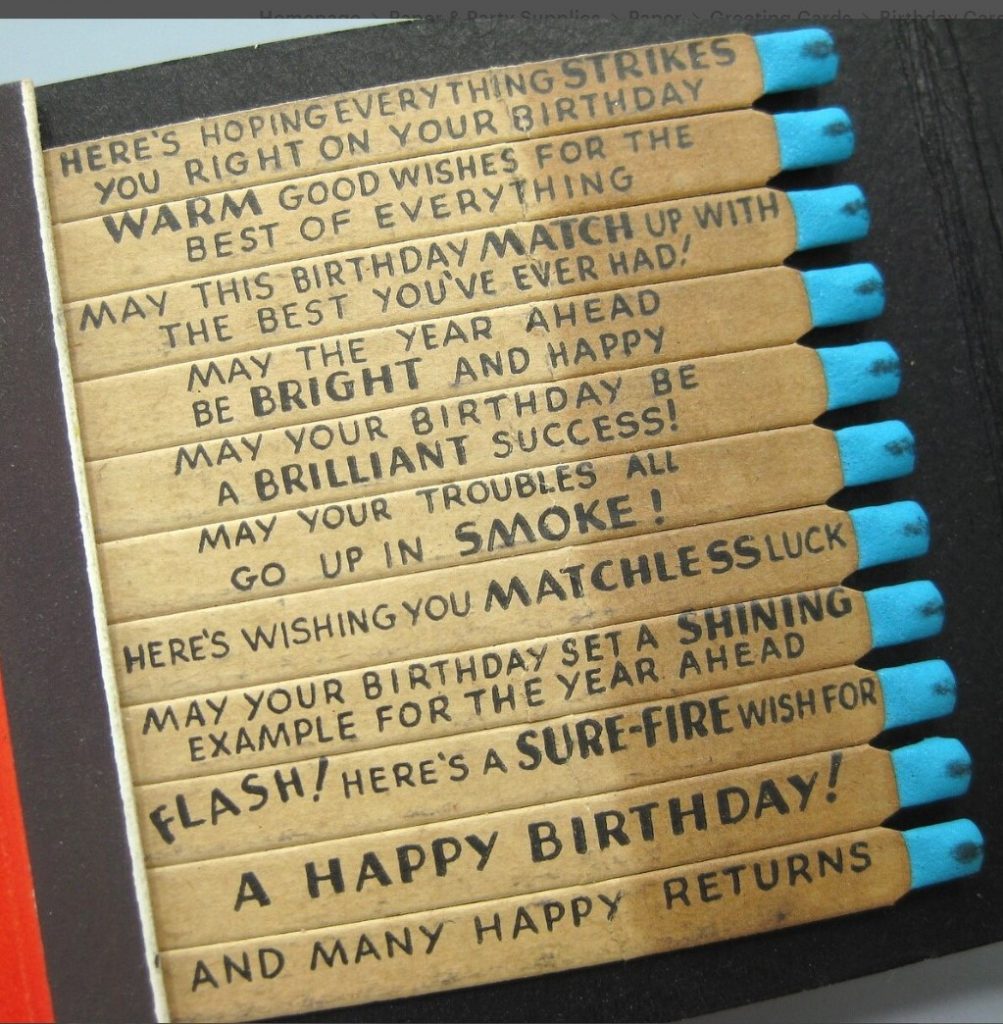 Homepage > Paper & Party Supplies > Paper > Greeting Cards > Birthday Car
HERE'S HOPING EVERYTHING STRIKES
YOU RIGHT ON YOUR BIRTHDAY
WARM GOOD WISHES FOR THE
BEST OF EVERYTHING
MAY THIS BIRTHDAY MATCH UP WITH
THE BEST YOU'VE EVER HAD!
MAY THE YEAR AHEAD
BE BRIGHT AND HAPPY
MAY YOUR BIRTHDAY BE
A BRILLIANT SUCCESS!
MAY YOUR TROUBLES ALL
GO UP IN SMOKE!
HERE'S WISHING YOU MATCHLESS LUCK
MAY YOUR BIRTHDAY SET A SHINING
EXAMPLE FOR THE YEAR AHEAD
FLASH! HERE'S A SURE-FIRE WISH FOR
A HAPPY BIRTHDAY!
AND MANY HAPPY RETURNS